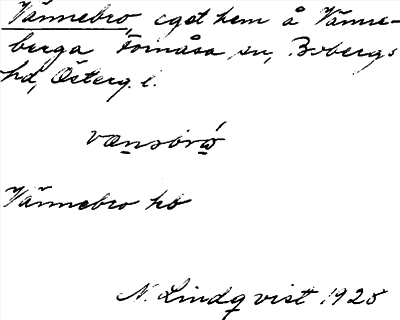 Vännebro, eget hem å Vänne-
berga Fornåsa sn, Bobergs
hd, Österg. l.
vænsbró
Vännebro hb
N. Lindqvist 1925